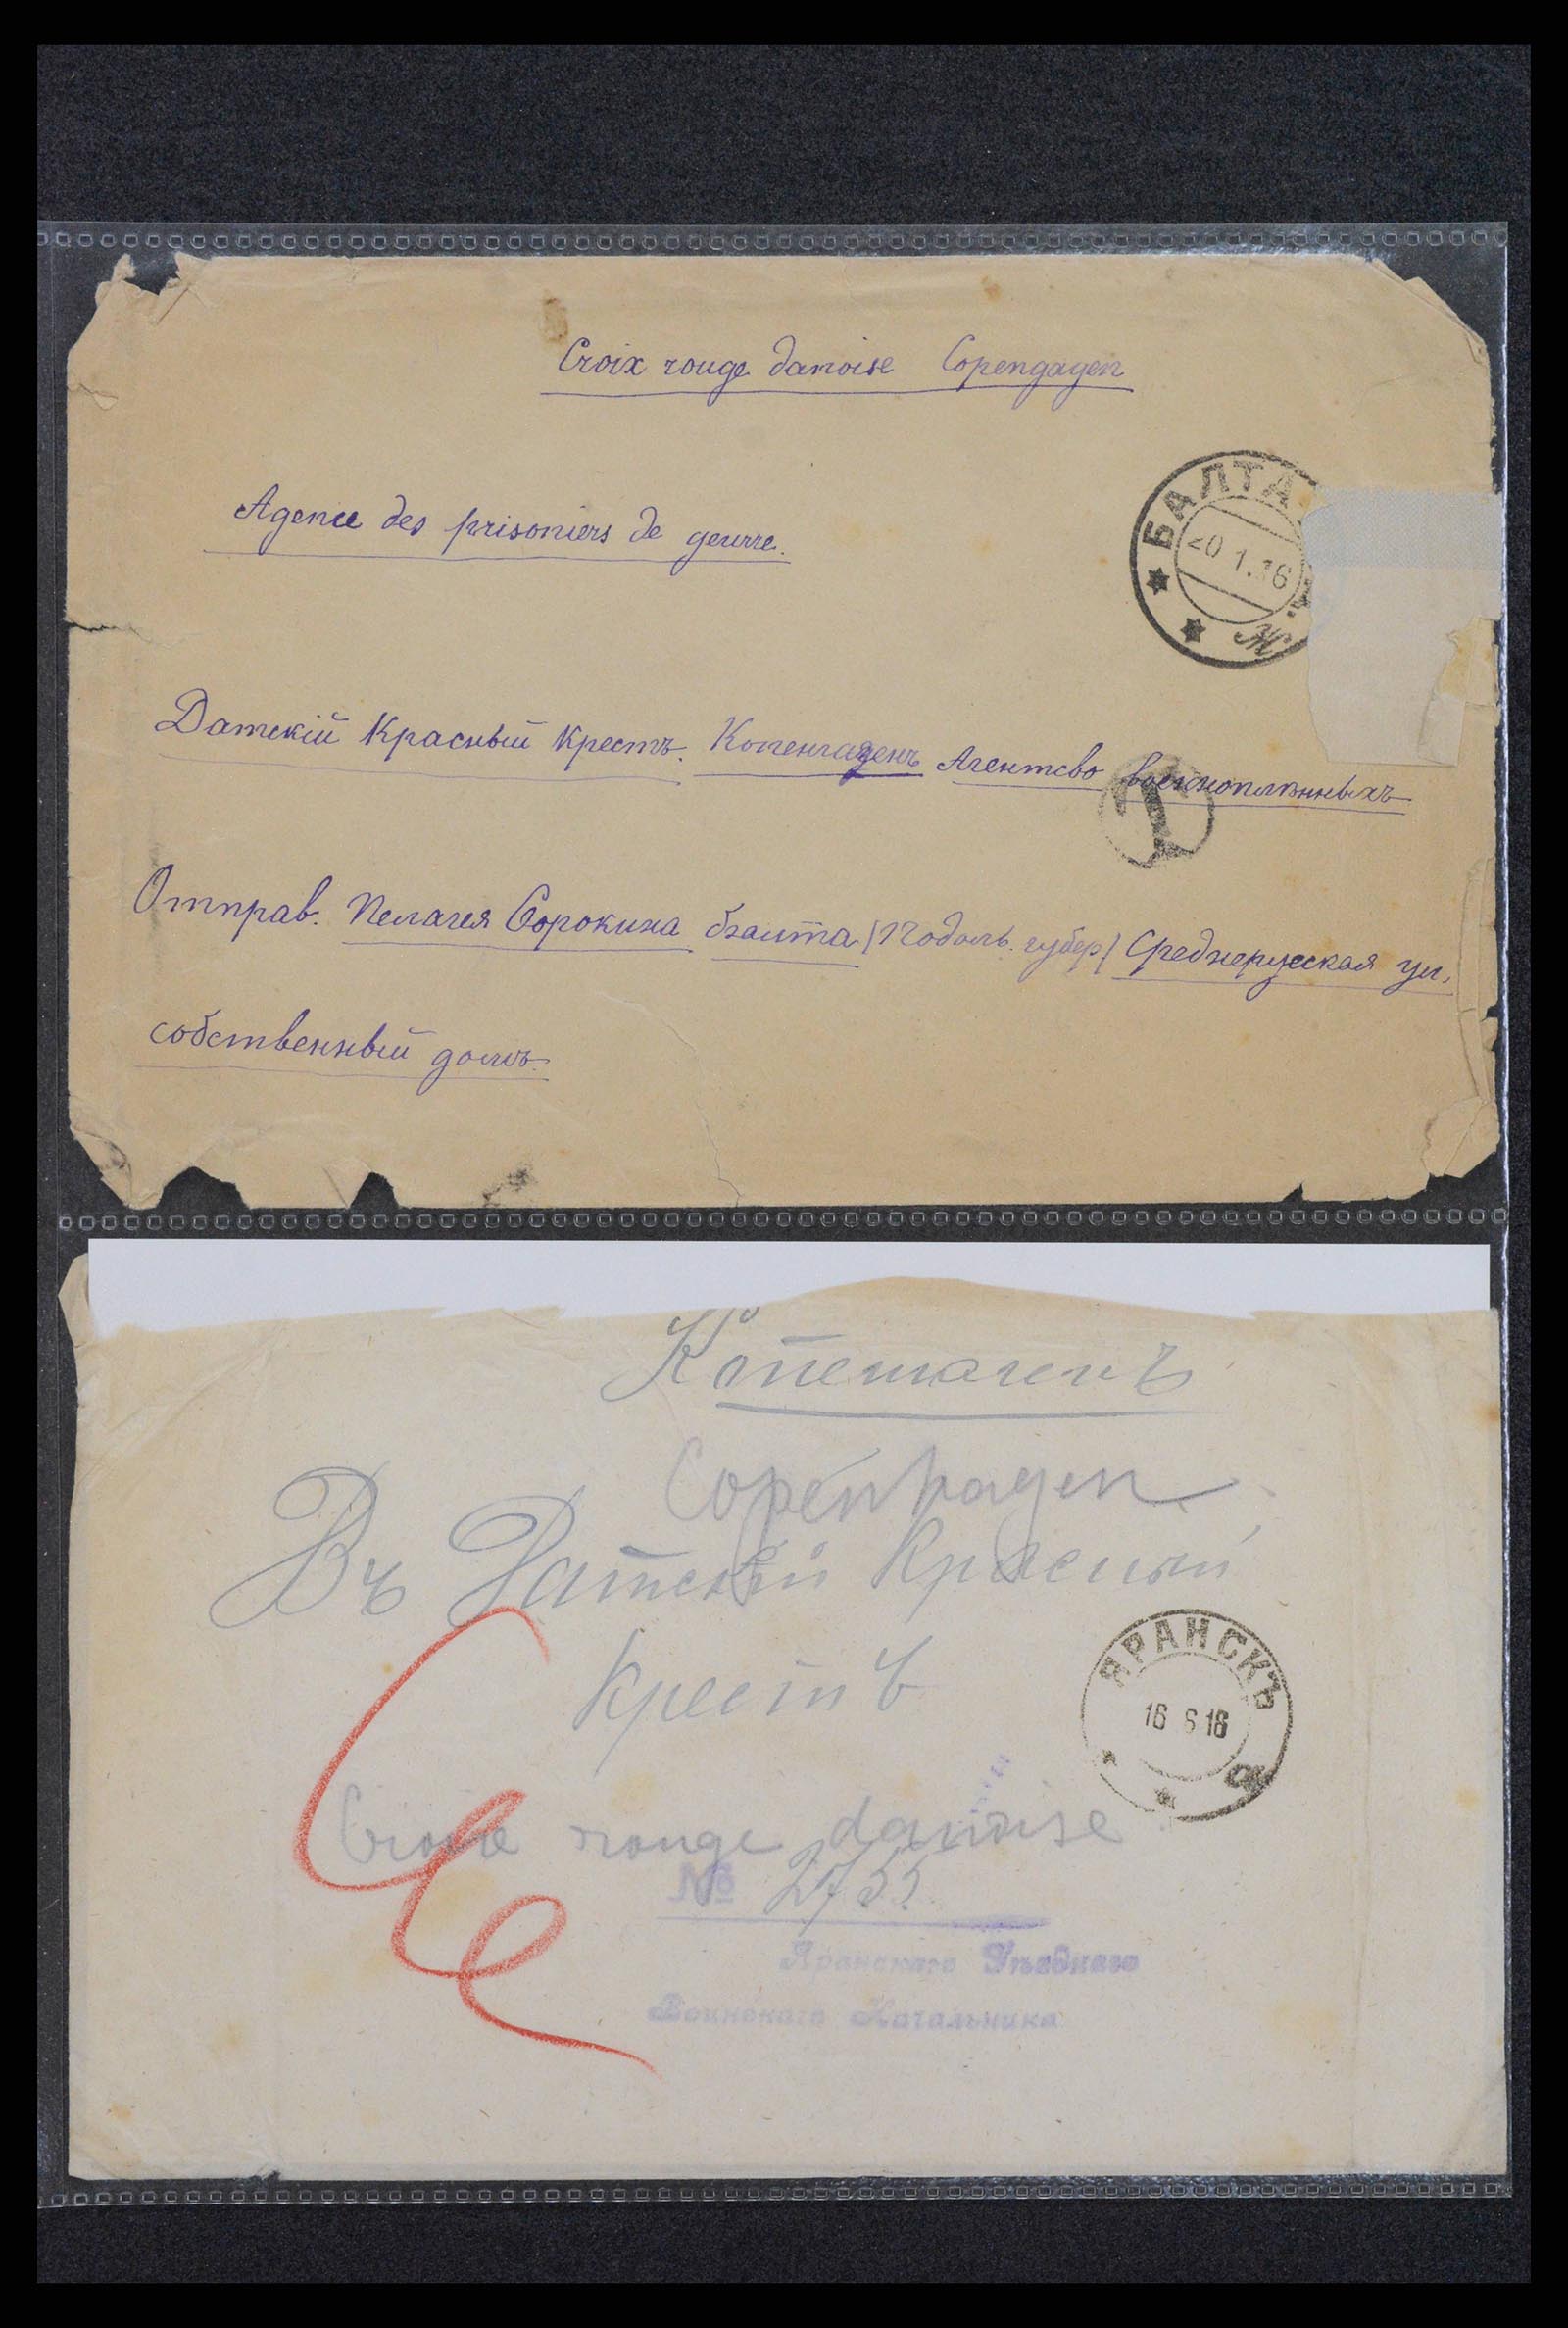 Croix rouge danoise Copengagen
Agence des prisoniers de geurre.
БАЛТА
20 1.16
Ж
Датскій Красный Крестъ. Копенгагенъ Агентсво военноплѣнныхъ
T
Отправ. Пелагея Сорокина Балта (Подоль. губер) Среднерусская ул.
собственный домъ.
Копенгагенъ
Copenhagen
Въ Датскій Красный
Крестъ
ЯРАНСКЪ
16 6 16
Croix rouge danoise
№ 2755
Яранскаго Уѣзднаго
Воинскаго Начальника